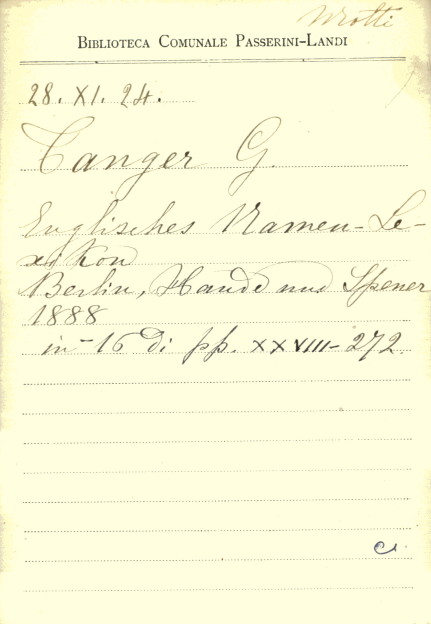 Motti
BIBLIOTECA COMUNALE PASSERINI-LANDI
28. XI. 24.
Tanger G.
Englisches Namen-Le-
xikon
Berlin, Haude und Spener
1888
in-16 di pp. XXVIII-272